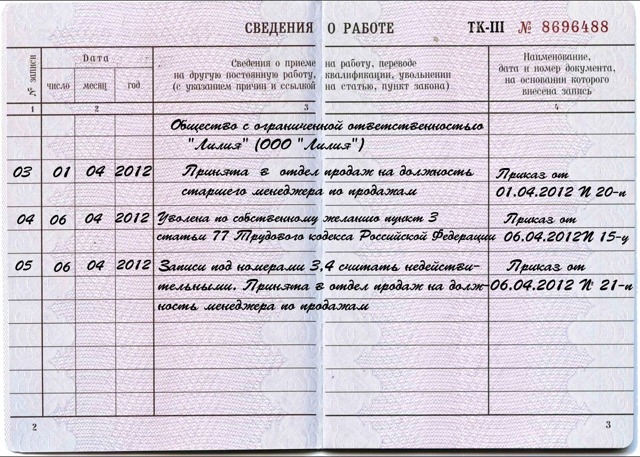 СВЕДЕНИЯ О РАБОТЕ ТК-III № 8696488
№ записи
Дата
число месяц год
Сведения о приеме на работу, переводе
на другую постоянную работу, квалификации, увольнении
(с указанием причин и ссылкой на статью, пункт закона)
Наименование,
дата и номер документа,
на основании которого
внесена запись
1 2 3 4
Общество с ограниченной ответственностью
"Лилия" (ООО "Лилия")
03 01 04 2012 Принята в отдел продаж на должность Приказ от
старшего менеджера по продажам 01.04.2012 N 20-п
04 06 04 2012 Уволена по собственному желанию пункт 3 Приказ от
статьи 77 Трудового кодекса Российской Федерации 06.04.2012 N 15-у
05 06 04 2012 Записи под номерами 3,4 считать недействи- Приказ от
тельными. Принята в отдел продаж на долж- 06.04.2012 N 21-п
ность менеджера по продажам
2 3